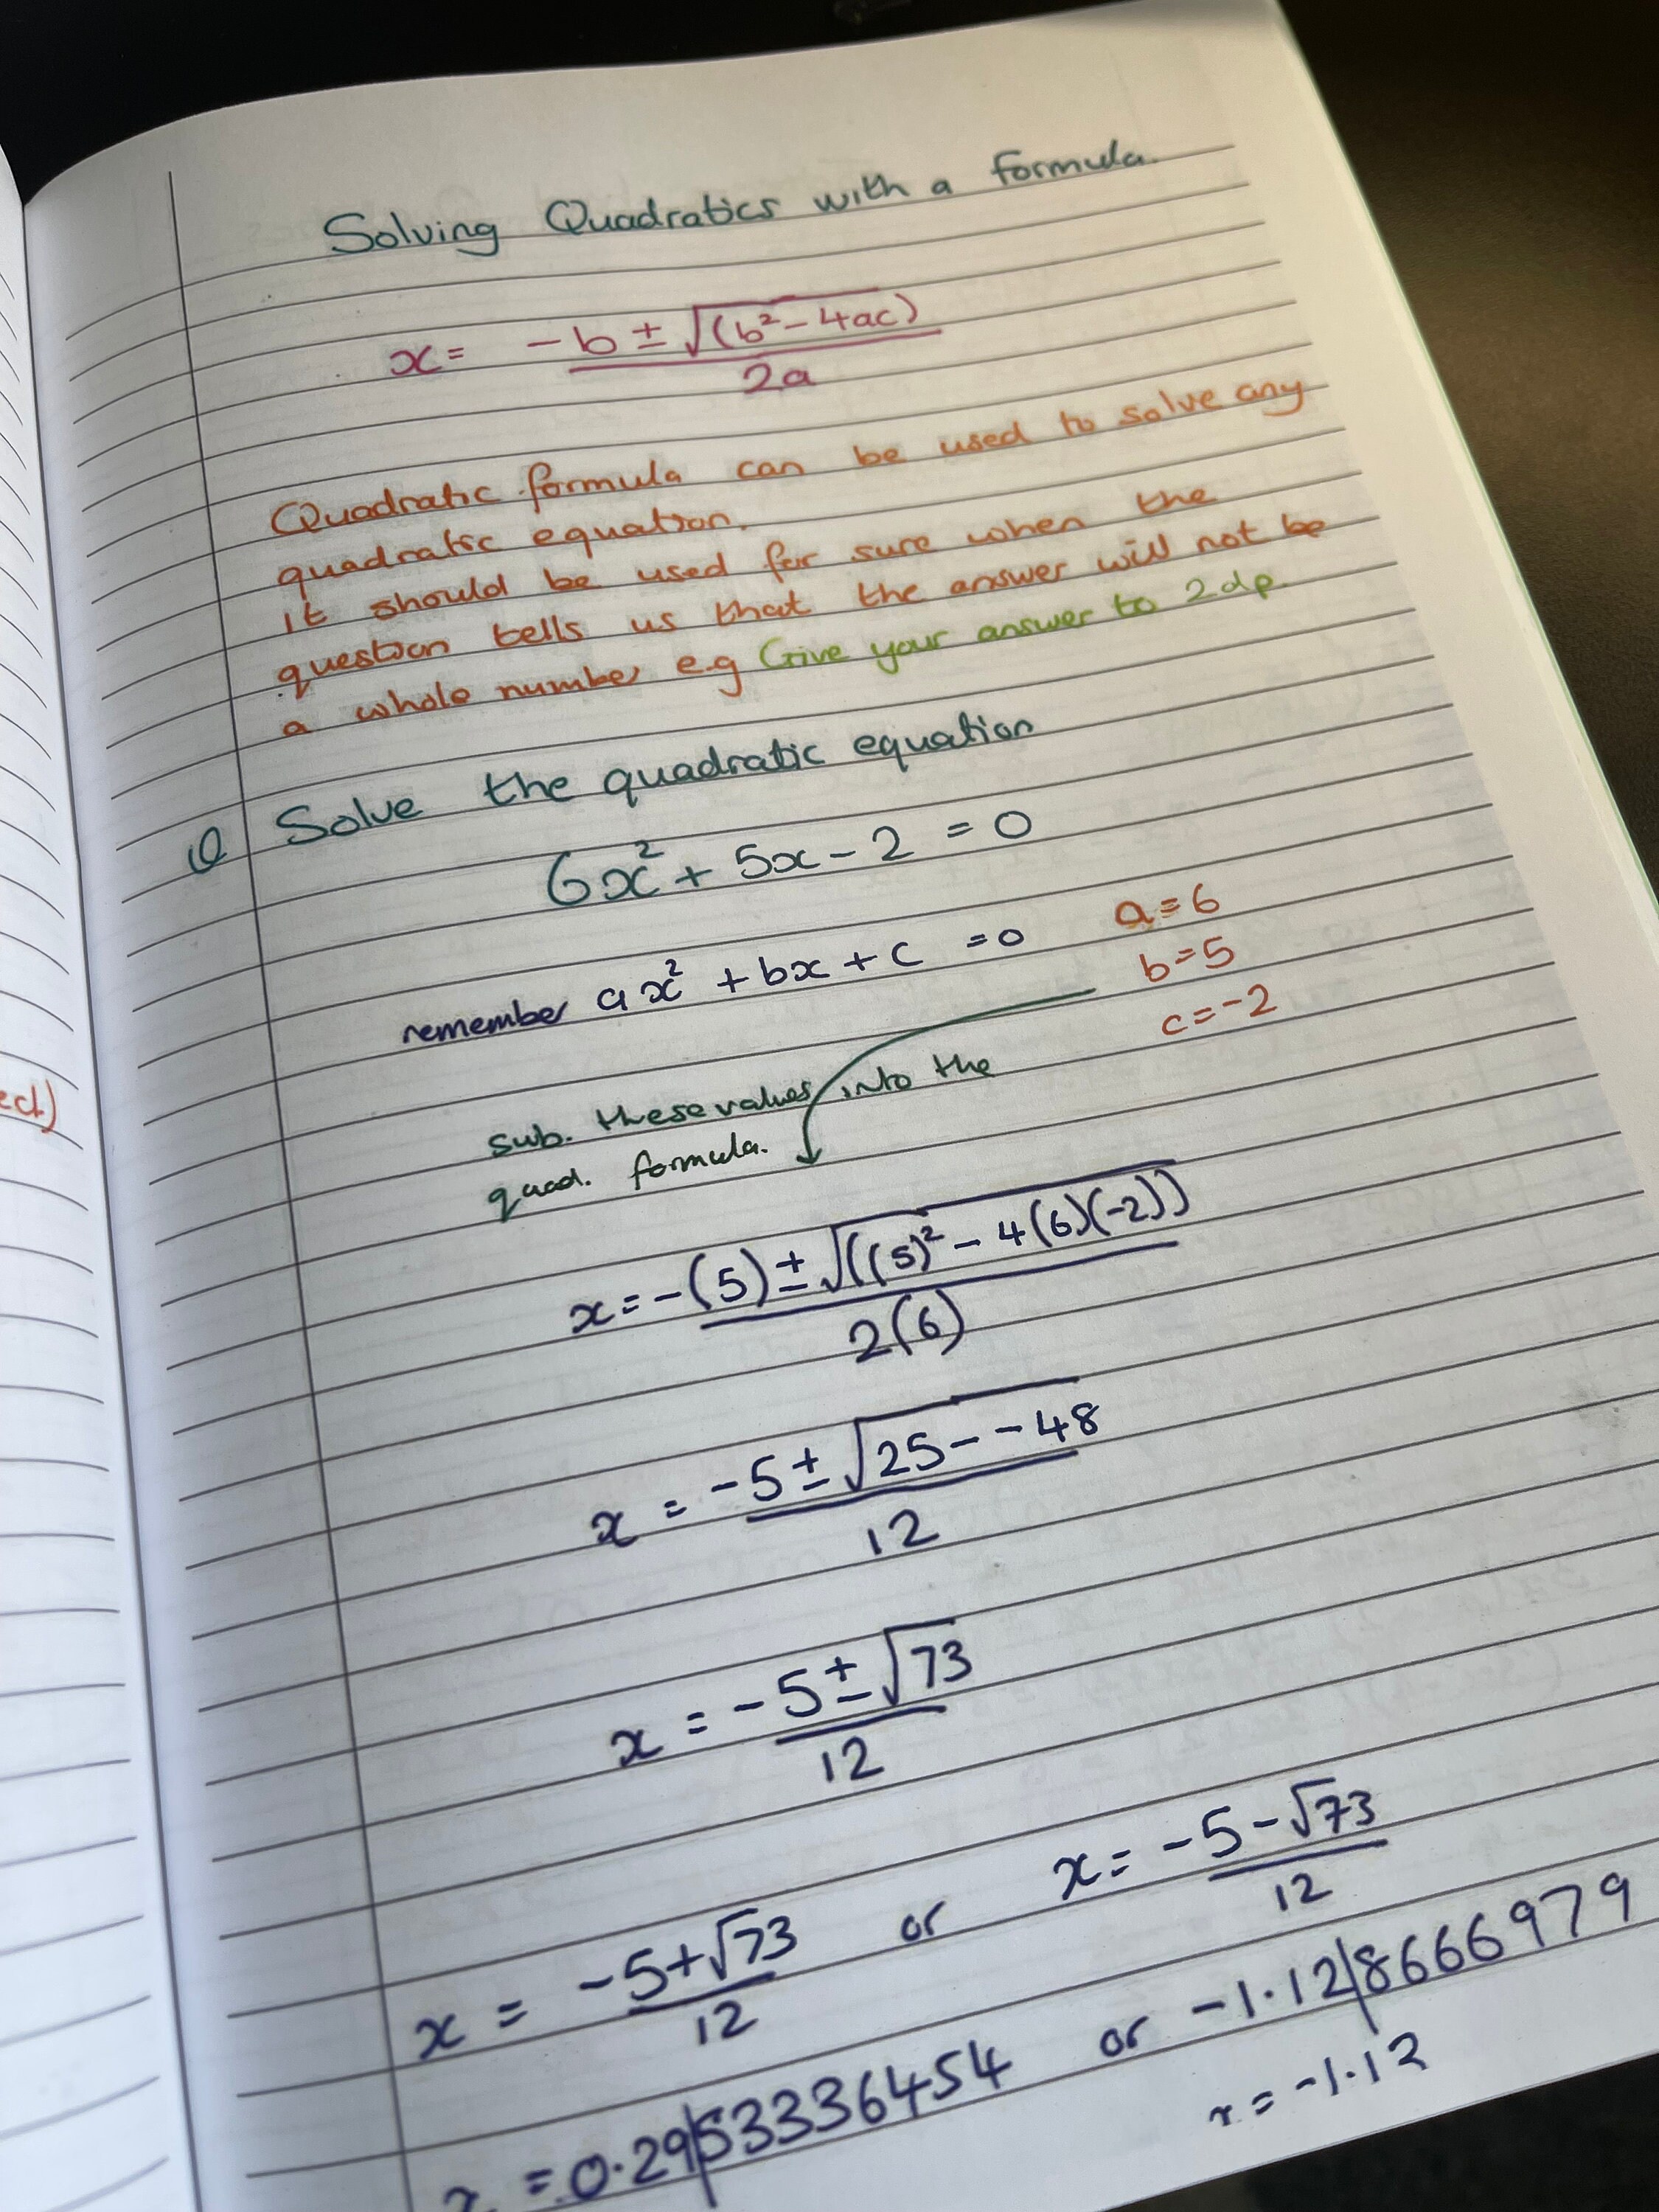 Solving Quadratics with a formula.
x = -b ± √(b² - 4ac)
2a
Quadratic formula can be used to solve any
quadratic equation.
it should be used for sure when the
question tells us that the answer will not be
a whole number e.g Give your answer to 2dp.
Q Solve the quadratic equation
6x² + 5x - 2 = 0
remember ax² + bx + c = 0
a = 6
b = 5
c = -2
sub. these values into the
quad. formula.
x = -(5) ± √((5)² - 4(6)(-2))
2(6)
x = -5 ± √25 - - 48
12
x = -5 ± √73
12
x = -5 + √73 or x = -5 - √73
12 12
x = 0.29|53336454 or -1.12|8666979
x = -1.13
ect)